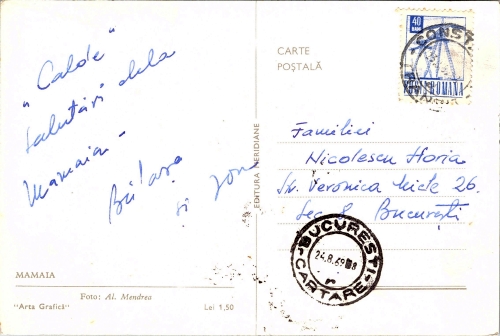 "Calde"
salutări dela
Mamaia -
și
MAMAIA
Foto: Al. Mendrea
"Arta Grafică"
Lei 1,50
EDITURA MERIDIANE
CARTE
POȘTALĂ
40
BANI
ROMANA
CONST
Familiei
Nicolescu Horia
Str. Veronica Micle 26.
Sec 8 București
BUCUREȘTI
24.8.69
CARTARE